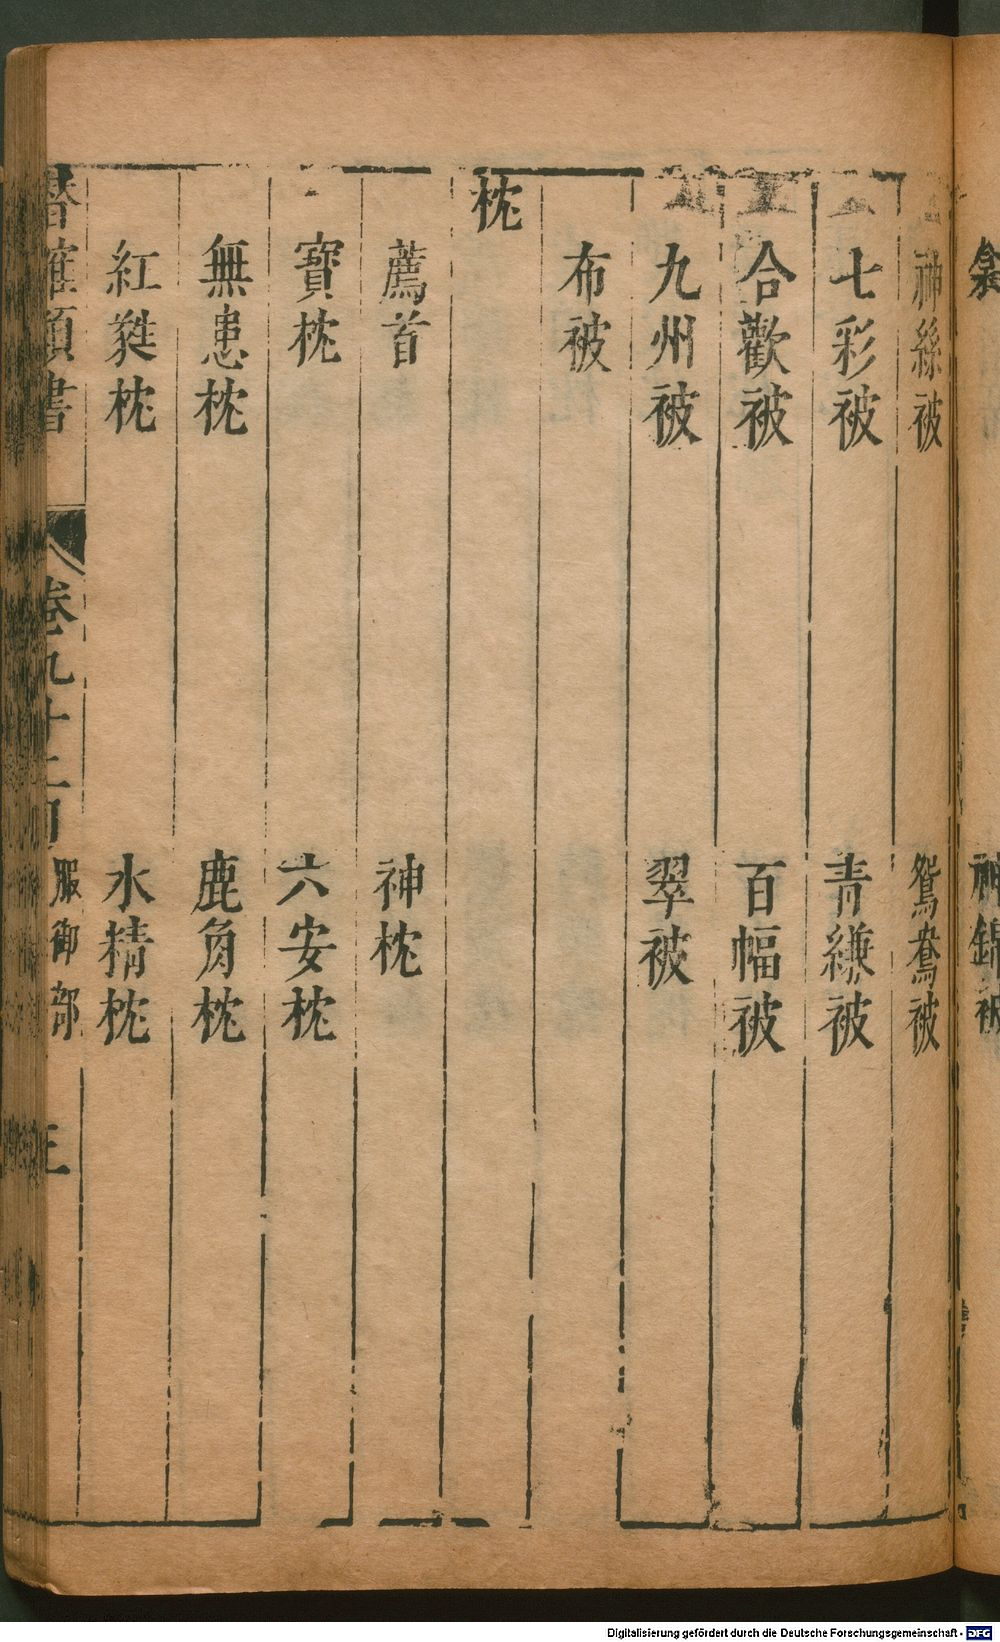 神絲被　鴛鴦被
七彩被　青縑被
合歡被　百幅被
九州被　翠被
布被
枕
薦首　神枕
寶枕　六安枕
無患枕　鹿角枕
紅蕤枕　水精枕
卷九十二　服御部　三
Digitalisierung gefördert durch die Deutsche Forschungsgemeinschaft - DFG